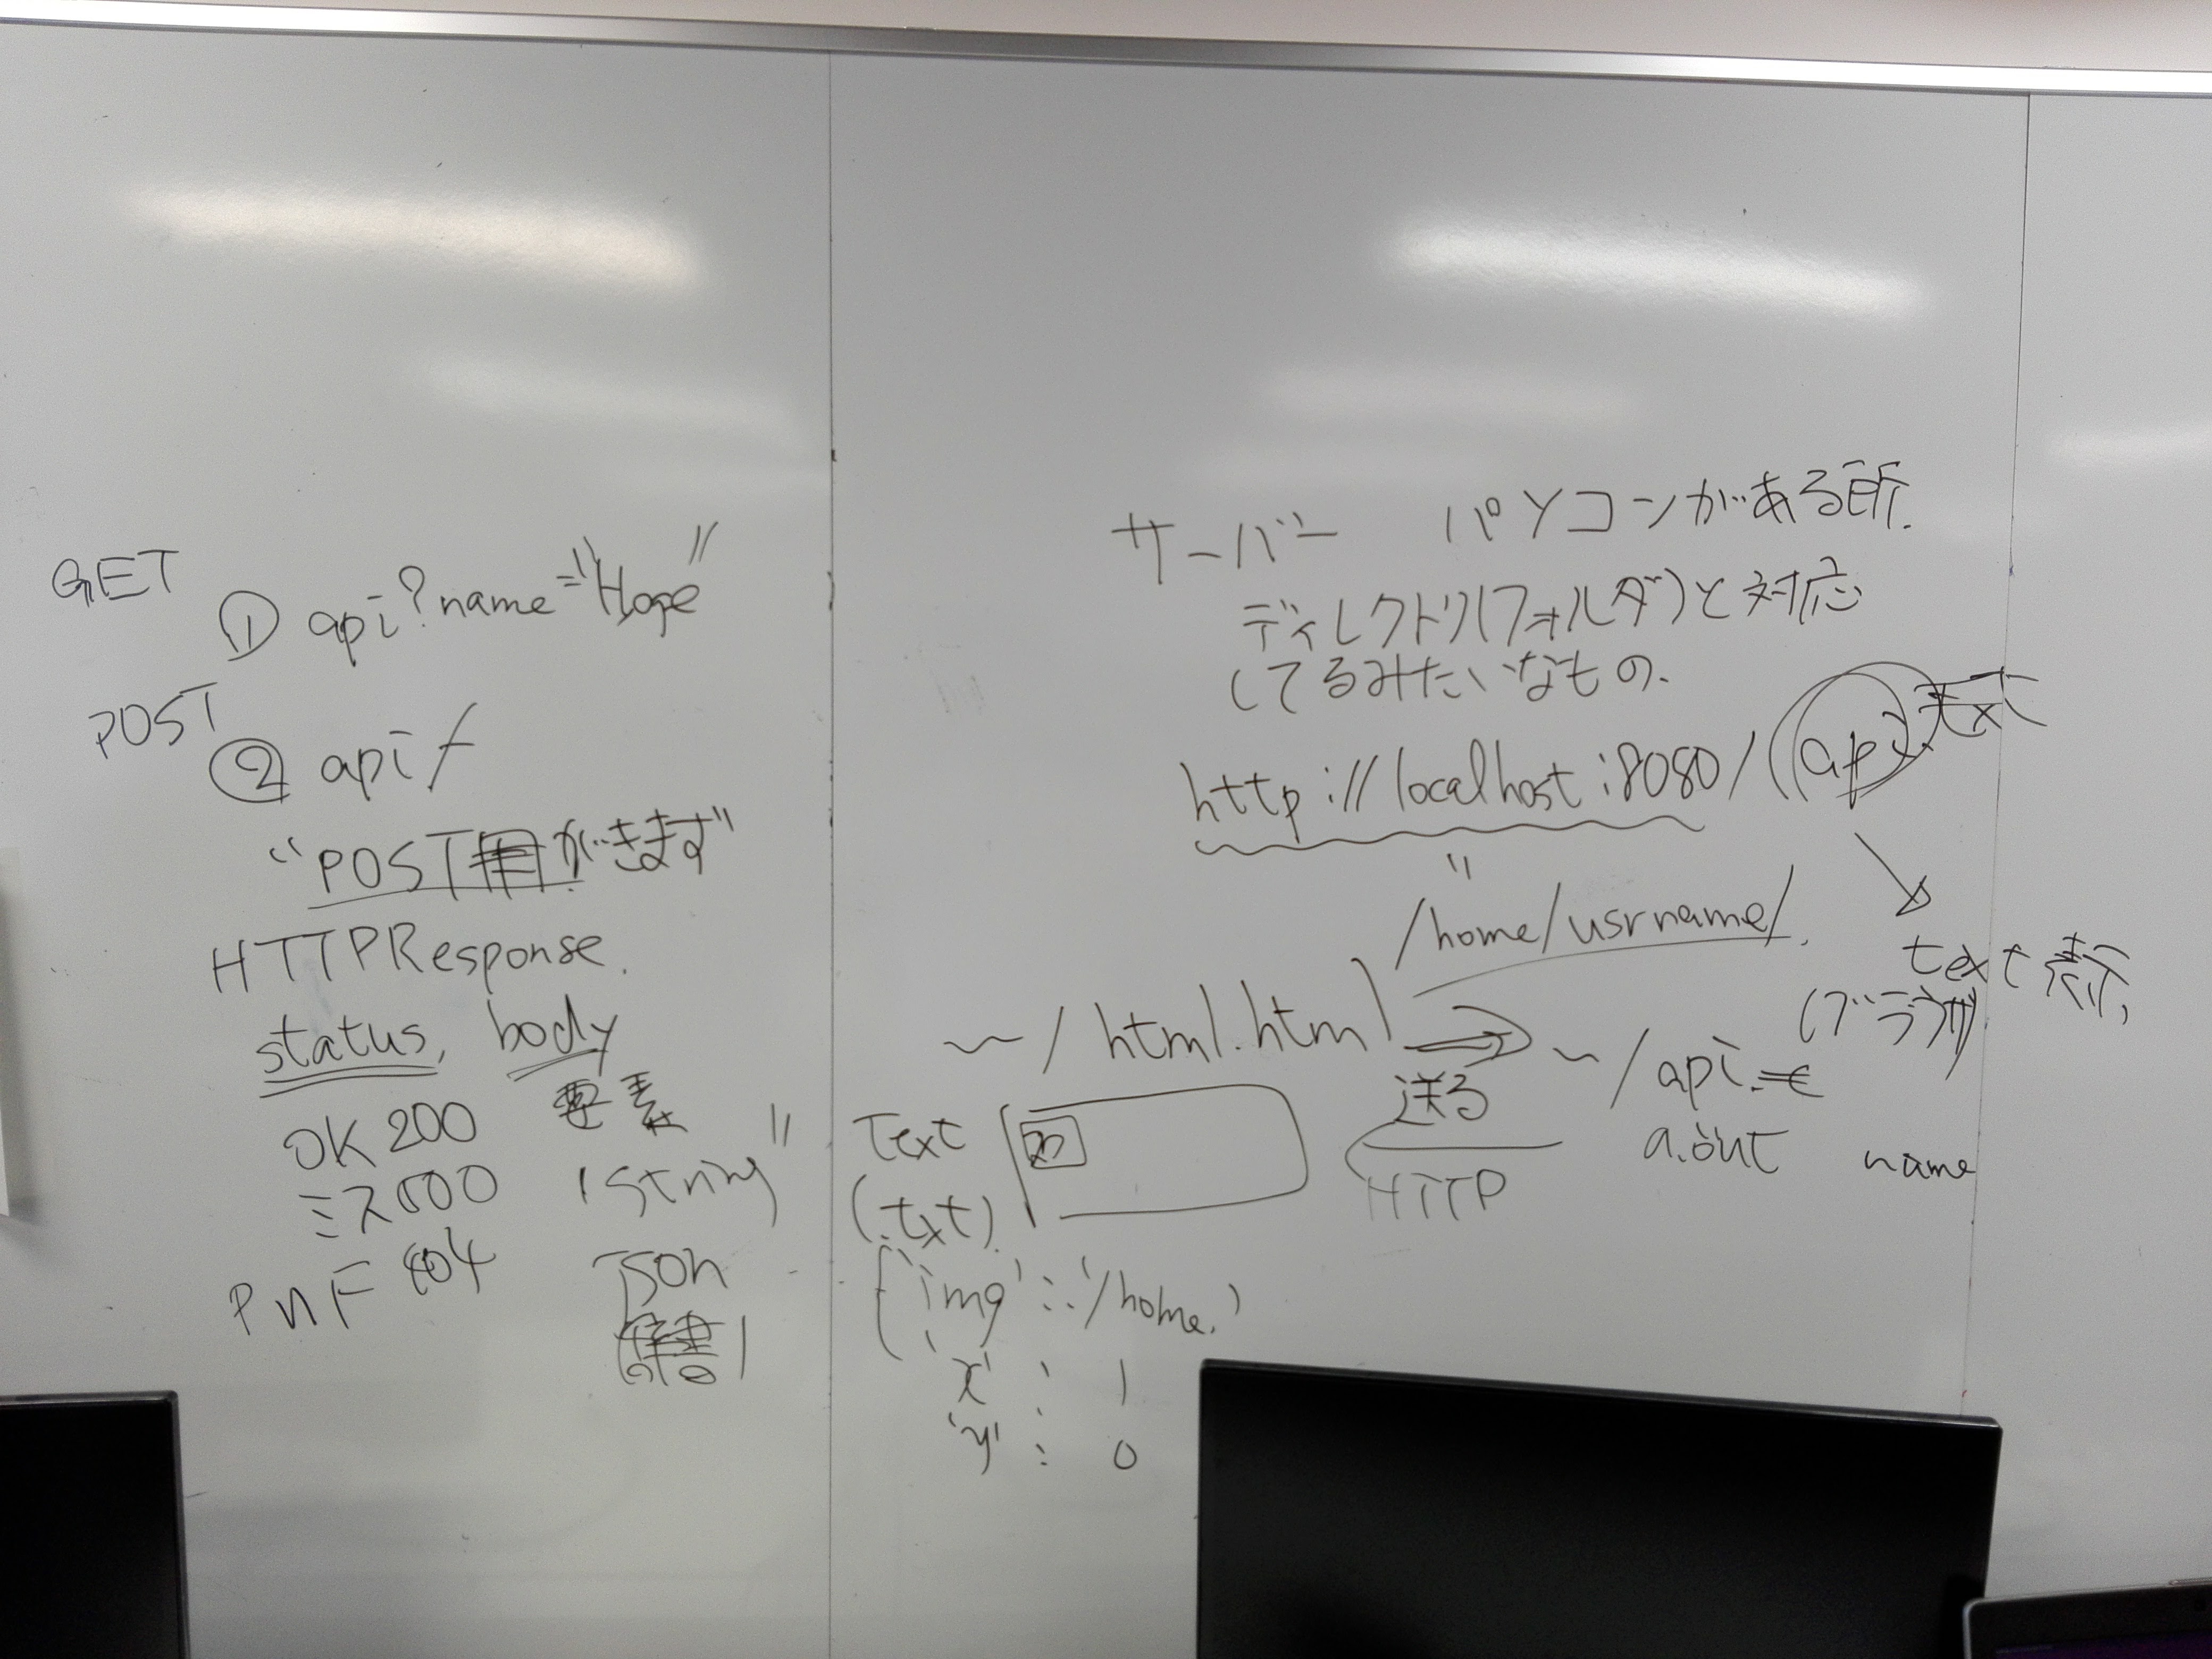 GET
① api?name="Hoge"
POST
② api/
"POST がきます"
HTTPResponse.
status, body
要素
OK 200
ミス 500
"string"
PnF 404
Json
辞書
サーバー パソコンがある所.
ディレクトリ(フォルダ)と対応
してるみたいなもの.
http://localhost:8080/api.txt
"
/home/usrname/.
text 表示
(ブラウザ)
~/html.html ⇒ ~/api.
送る
HTTP
a.out name
Text
(.txt)
{'img' : '/home.'
'x' : 1
'y' : 0